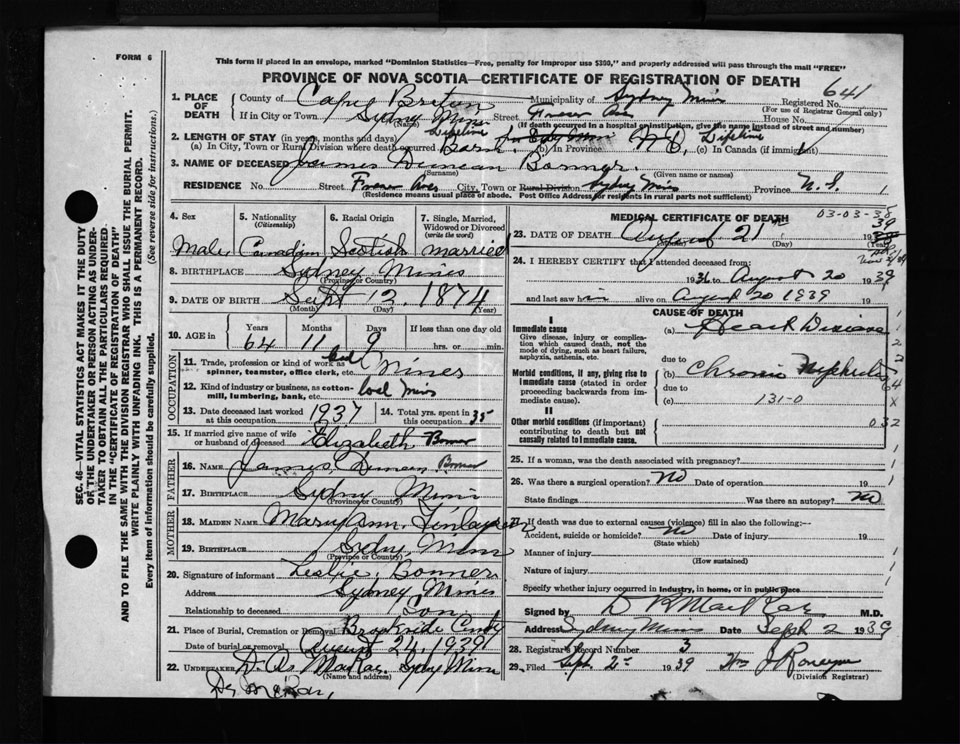 FORM 6
This form if placed in an envelope, marked "Dominion Statistics—Free, penalty for improper use $300," and properly addressed will pass through the mail "FREE"
PROVINCE OF NOVA SCOTIA—CERTIFICATE OF REGISTRATION OF DEATH
641
1. PLACE OF DEATH County of Cape Breton Municipality of Sydney Mines Registered No.
(For use of Registrar General only)
If in City or Town Sydney Mines Street Fraser Ave House No.
(Name) (If death occurred in a hospital or institution, give the name instead of street and number)
2. LENGTH OF STAY (in years, months and days)
(a) In City, Town or Rural Division where death occurred Lifetime (b) In Province (c) In Canada (if immigrant) Lifetime
3. NAME OF DECEASED James Duncan Bonner
(Surname) (Given name or names)
RESIDENCE No. Street Fraser Ave City, Town or Rural Division Sydney Mines Province N.S. 1
(Residence means usual place of abode. Post Office Address for residents in rural parts not sufficient)
4. Sex 5. Nationality (Citizenship) 6. Racial Origin 7. Single, Married, Widowed or Divorced (write the word)
Male Canadian Scotish married
8. BIRTHPLACE Sydney Mines
(Province or Country)
9. DATE OF BIRTH Sept 12. 1874
(Month) (Day) (Year)
10. AGE in Years Months Days If less than one day old
64 11 9 hrs. or min.
OCCUPATION
11. Trade, profession or kind of work as spinner, teamster, office clerk, etc.
12. Kind of industry or business, as cotton-mill, lumbering, bank, etc. Coal Mines
13. Date deceased last worked at this occupation 1937 14. Total yrs. spent in this occupation 35
15. If married give name of wife or husband of deceased Elizabeth Bonner
FATHER
16. NAME James Duncan Bonner
17. BIRTHPLACE Sydney Mines
(Province or Country)
MOTHER
18. MAIDEN NAME Mary Ann Finlayson
19. BIRTHPLACE Sydney Mines
(Province or Country)
20. Signature of informant Leslie Bonner
Address Sydney Mines
Relationship to deceased Son
21. Place of Burial, Cremation or Removal Brookside Cemty
Date of burial or removal August 24, 1939
22. UNDERTAKER Sydney Mines
(Name and address)
MEDICAL CERTIFICATE OF DEATH 03-03-38
23. DATE OF DEATH August 21 1939
(Month) (Day) (Year)
24. I HEREBY CERTIFY that I attended deceased from:
1936 to August 20 1939
and last saw him alive on August 20 1939 19
CAUSE OF DEATH
I
Immediate cause (a) Heart Disease
Give disease, injury or complication which caused death, not the mode of dying, such as heart failure, asphyxia, asthenia, etc.
due to
Morbid conditions, if any, giving rise to immediate cause (stated in order proceeding backwards from immediate cause). (b) Chronic Nephritis
due to
(c) 131-0
II
Other morbid conditions (if important) contributing to death but not causally related to immediate cause. 032
25. If a woman, was the death associated with pregnancy?
26. Was there a surgical operation? No Date of operation 19
State findings Was there an autopsy? No
27. If death was due to external causes (violence) fill in also the following:—
Accident, suicide or homicide? No Date of injury 19
(State which)
Manner of injury
(How sustained)
Nature of injury
Specify whether injury occurred in industry, in home, or in public place
Signed by M.D.
Address Sydney Mines Date Sept 2 1939
28. Registrar's Record Number 3
29. Filed Sept. 2 1939
(Division Registrar)
SEC. 46—VITAL STATISTICS ACT MAKES IT THE DUTY OF THE UNDERTAKER OR PERSON ACTING AS UNDERTAKER TO OBTAIN ALL THE PARTICULARS REQUIRED IN THE "CERTIFICATE OF REGISTRATION OF DEATH" AND TO FILE THE SAME WITH THE DIVISION REGISTRAR WHO SHALL ISSUE THE BURIAL PERMIT.
WRITE PLAINLY WITH UNFADING INK. THIS IS A PERMANENT RECORD.
Every item of information should be carefully supplied. (See reverse side for instructions.)